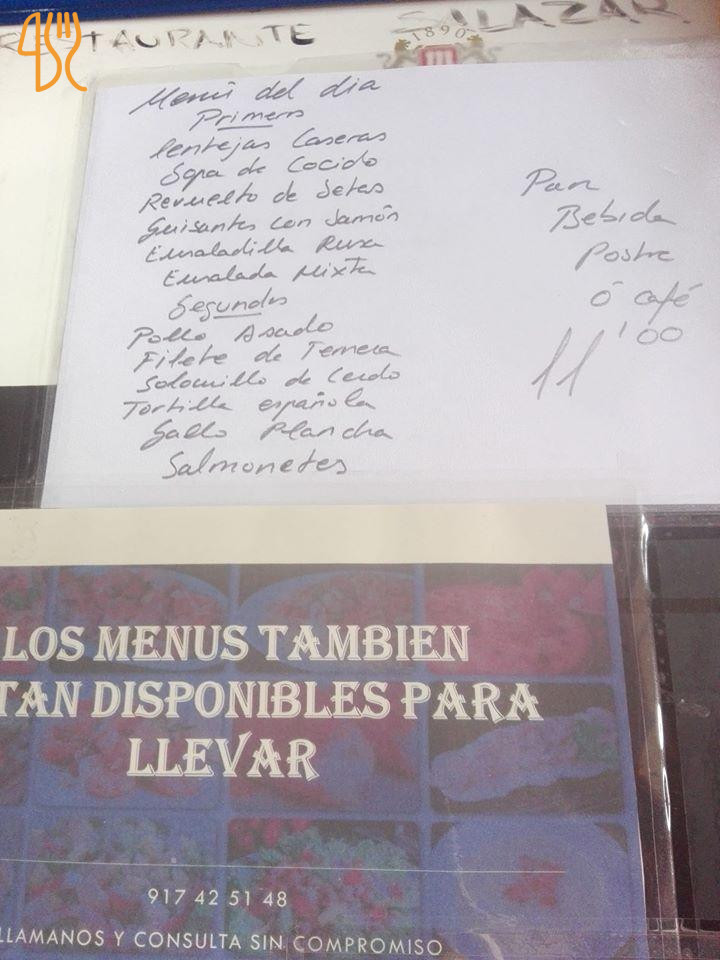 RESTAURANTE SALAZAR
1890
Menú del dia
Primeros
lentejas Caseras
Sopa de Cocido
Revuelto de Setas
Guisantes con Jamón
Ensaladilla Rusa
Ensalada Mixta
Segundos
Pollo Asado
Filete de Ternera
Solomillo de Cerdo
Tortilla española
Gallo Plancha
Salmonetes
Pan
Bebida
Postre
ó café
11'00
LOS MENUS TAMBIEN
TAN DISPONIBLES PARA
LLEVAR
917 42 51 48
LLAMANOS Y CONSULTA SIN COMPROMISO